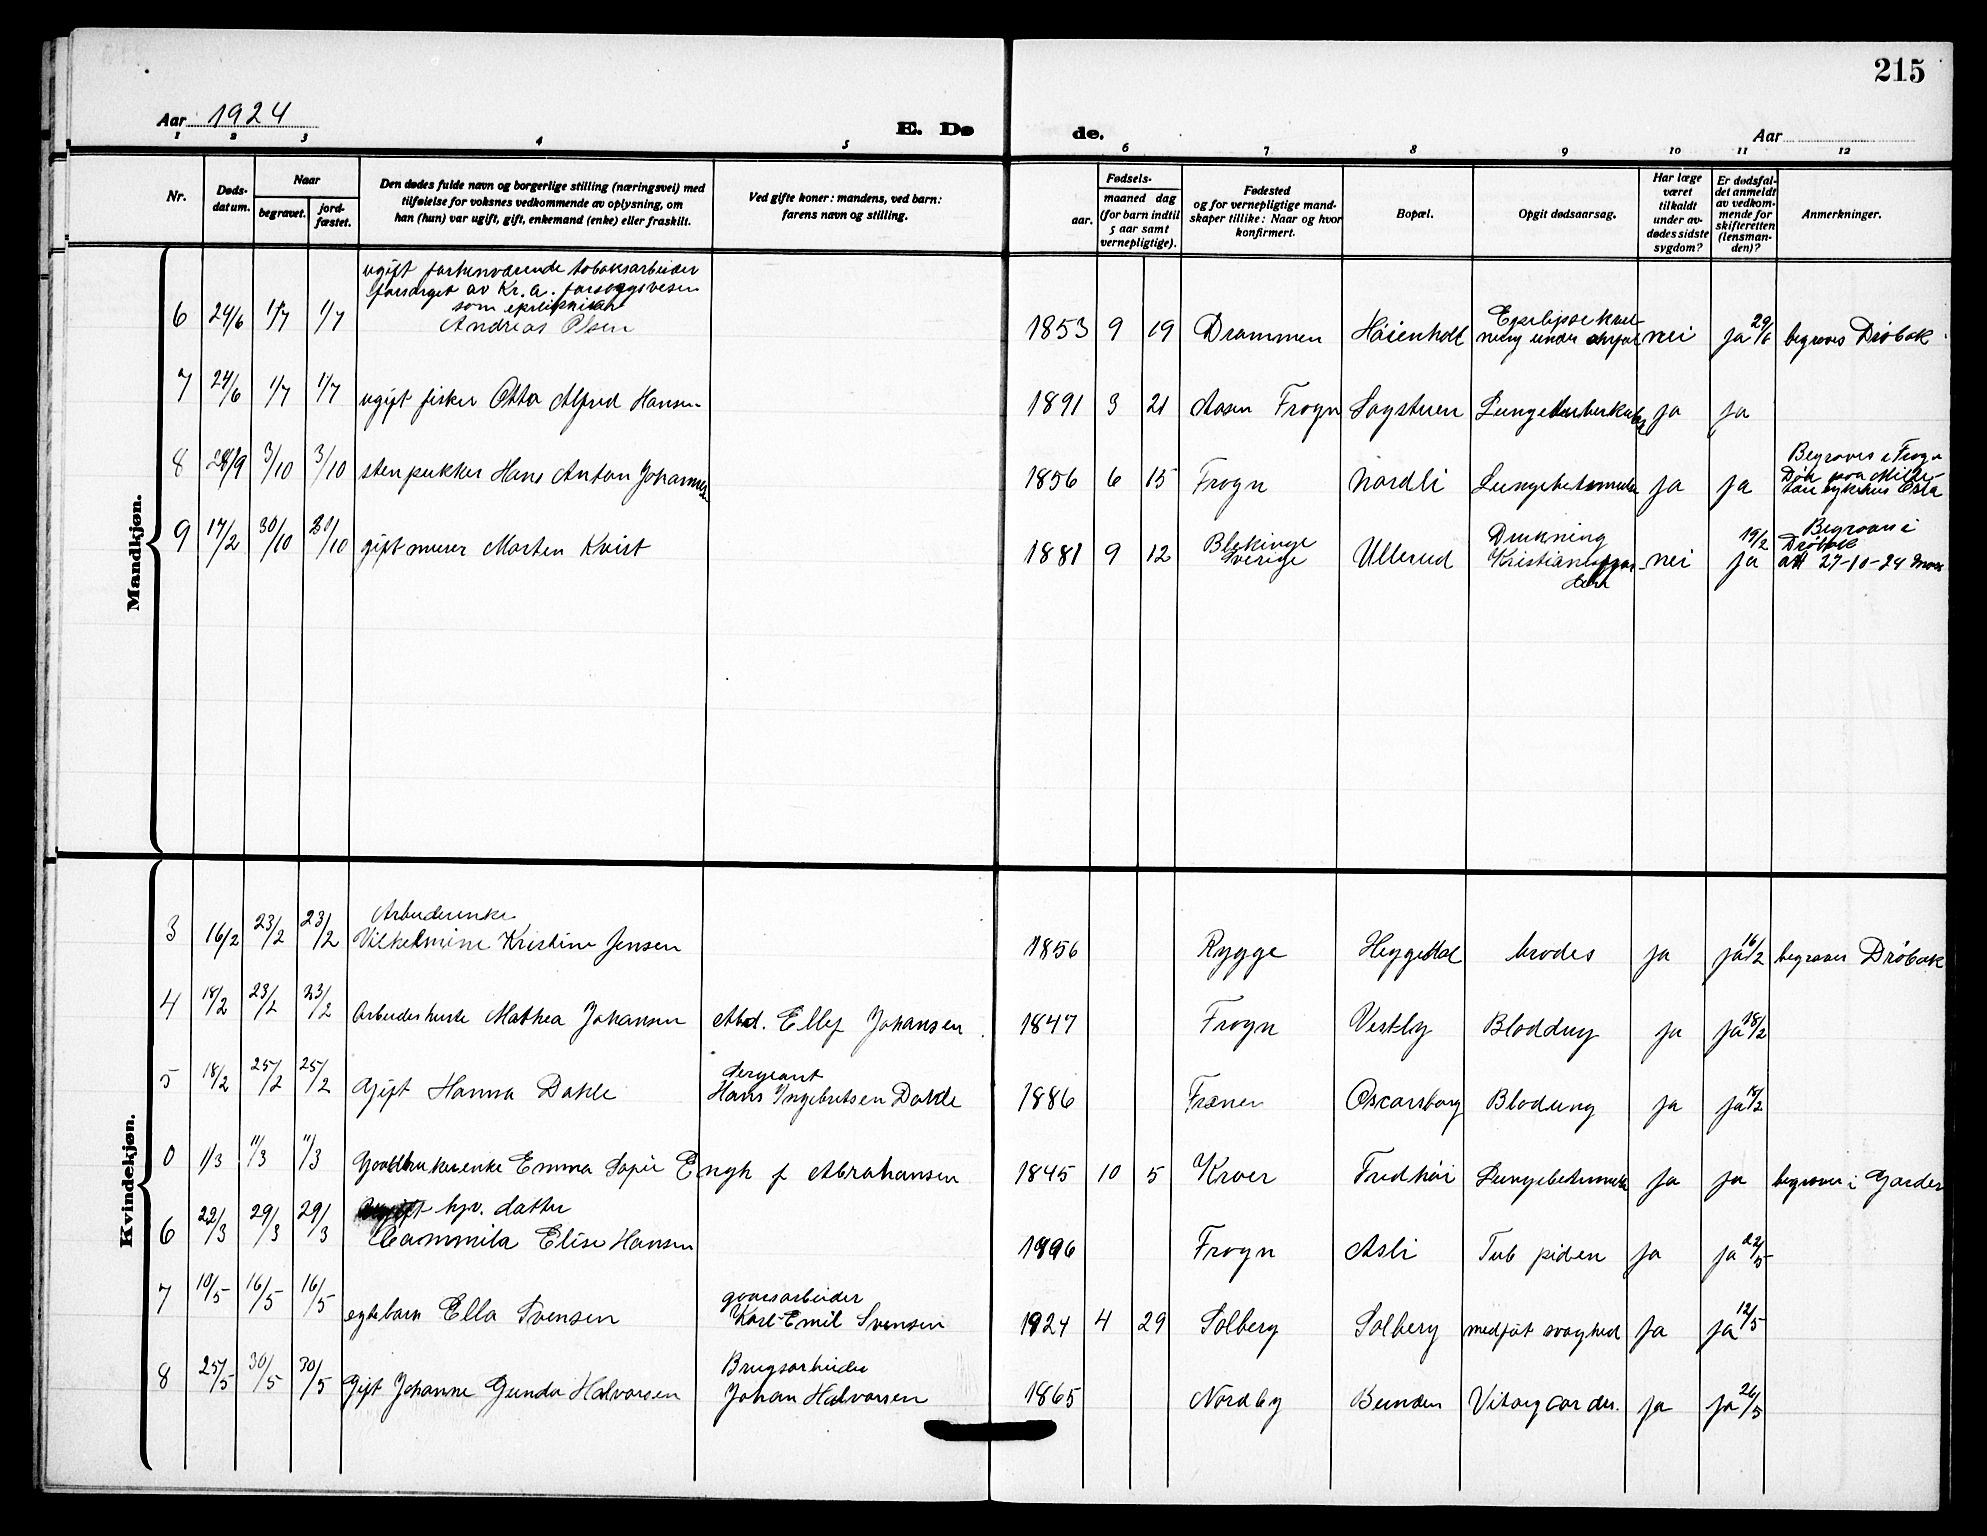 215
Aar 1924
E. Dø
de.
Aar
1 2 3 4 5 6 7 8 9 10 11 12
Nr.
Døds-
datum.
Naar
begravet.
jord-
fæstet.
Den dødes fulde navn og borgerlige stilling (næringsvei) med
tilføielse for voksnes vedkommende av oplysning, om
han (hun) var ugift, gift, enkemand (enke) eller fraskilt.
Ved gifte koner: mandens, ved barn:
farens navn og stilling.
Fødsels-
aar.
maaned dag
(for barn indtil
5 aar samt
vernepligtige).
Fødested
og for vernepligtige mand-
skaper tillike: Naar og hvor
konfirmert.
Bopæl.
Opgit dødsaarsag.
Har læge
været
tilkaldt
under av-
dødes sidste
sygdom?
Er dødsfal-
det anmeldt
av vedkom-
mende for
skifteretten
(lensman-
den)?
Anmerkninger.
Mandkjøn.
ugift forhenværende tobaksarbeider
forsørget av Kr.a. forsorgsvesen
som epileptiker
6 24/6 1/7 1/7 Andreas Olsen 1853 9 19 Drammen Høienhall nei ja 29/6 begraves Drøbak
7 24/6 1/7 1/7 ugift fisker Otto Alfred Hansen 1891 3 21 Aasen Frogn Sagstuen Lungetuberkulos ja ja
8 28/9 3/10 3/10 stenpukker Hans Anton Johannes 1856 6 15 Frogn Nordli Lungebetennelse ja ja
Begraves i Frogn
Død paa Mili-
tære sykehus Oslo
9 17/2 30/10 30/10 gift murer Morten Kvist 1881 9 12 Blekinge
Sverige Ullerud Drukning
Kristianiafjor-
den nei 19/2 ja
Begraves i
Drøbak
att 27-10-24 Moss
Kvindekjøn.
Arbeiderenke
3 16/2 23/2 23/2 Vilhelmine Kristine Jensen 1856 Rygge Heggedal brodes ja ja 16/2 begraves Drøbak
4 18/2 23/2 23/2 Arbeiderhustr Mathea Johansen Arbd. Ellef Johansen 1847 Frogn Vestby Bloddrog ja ja 18/2
5 18/2 25/2 25/2 Gift Hanna Dakle Sergeant
Hans Ingebretsen Dakle 1886 Fræner Oscarsborg Blodung ja ja 18/2
0 1/3 11/3 11/3 Gaardbrukerenke Emma Sofie Engh f Abrahansen 1845 10 5 Kroer Fredhøi Lungebetennelse ja ja begraves i Garder
ugift hjv. datter
6 22/3 29/3 29/3 Cammila Elise Hansen 1896 Frogn Asli Tub ja ja
7 10/5 16/5 16/5 egtebarn Ella Svensen gaarsarbeider
Karl Emil Svensen 1924 4 29 Solberg Solberg medføt svaghed ja ja 12/5
8 25/5 30/5 30/5 Gift Johanne Gunda Halvorsen Brugsarbeider
Johan Halvorsen 1865 Nordby Bunden ja ja 26/5